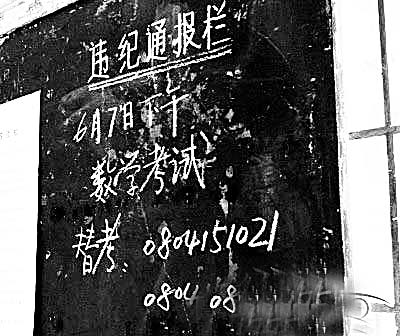 违纪通报栏
6月7日下午
数学考试
替考: 0804151021
0804 08